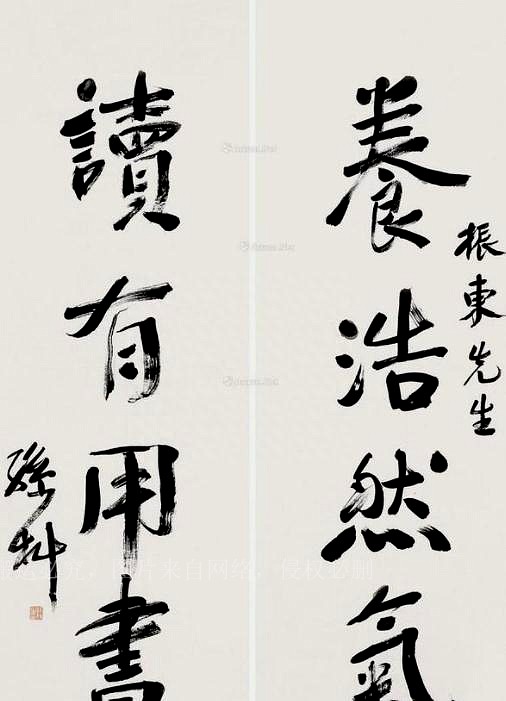 振東先生
養浩然氣
讀有用書
孫科